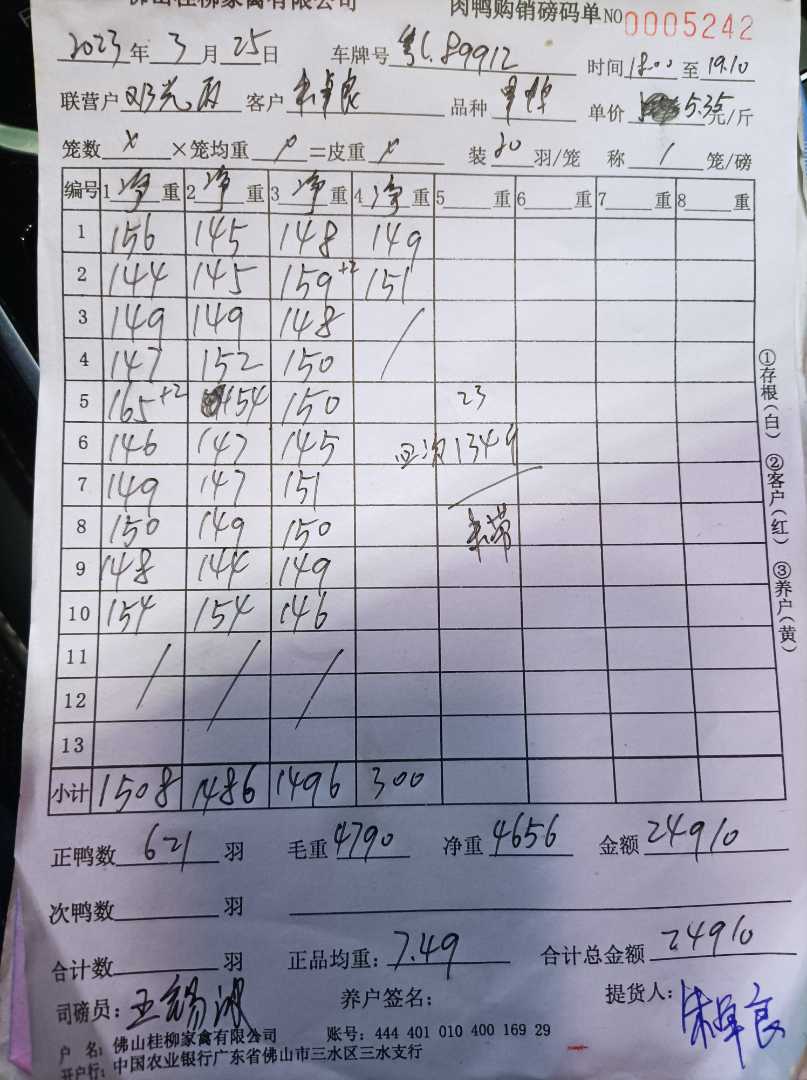 佛山桂柳家禽有限公司 肉鸭购销磅码单 NO 0005242
2023年 3月 25日 车牌号 粤L.89912 时间 18:00 至 19.10
联营户 客户 朱卓良 品种 单价 5.35元/斤
笼数 × ×笼均重 =皮重 × 装 20 羽/笼 称 / 笼/磅
编号 1 净 重 2 净 重 3 净 重 4 净 重 5 重 6 重 7 重 8 重
1 156 145 148 149
2 144 145 159+2 151
3 149 149 148 /
4 147 152 150
5 165+2 154 150 23
6 146 147 145 1349
7 149 147 151
8 150 149 150
9 148 144 149
10 154 154 146
11 / / /
12
13
小计 1508 1486 1496 300
正鸭数 621 羽 毛重 4790 净重 4656 金额 24910
次鸭数 羽
合计数 羽 正品均重: 7.49 合计总金额 24910
司磅员: 王锡波 养户签名: 提货人: 朱卓良
户 名: 佛山桂柳家禽有限公司 账号: 444 401 010 400 169 29
开户行: 中国农业银行广东省佛山市三水区三水支行
①存根(白) ②客户(红) ③养户(黄)